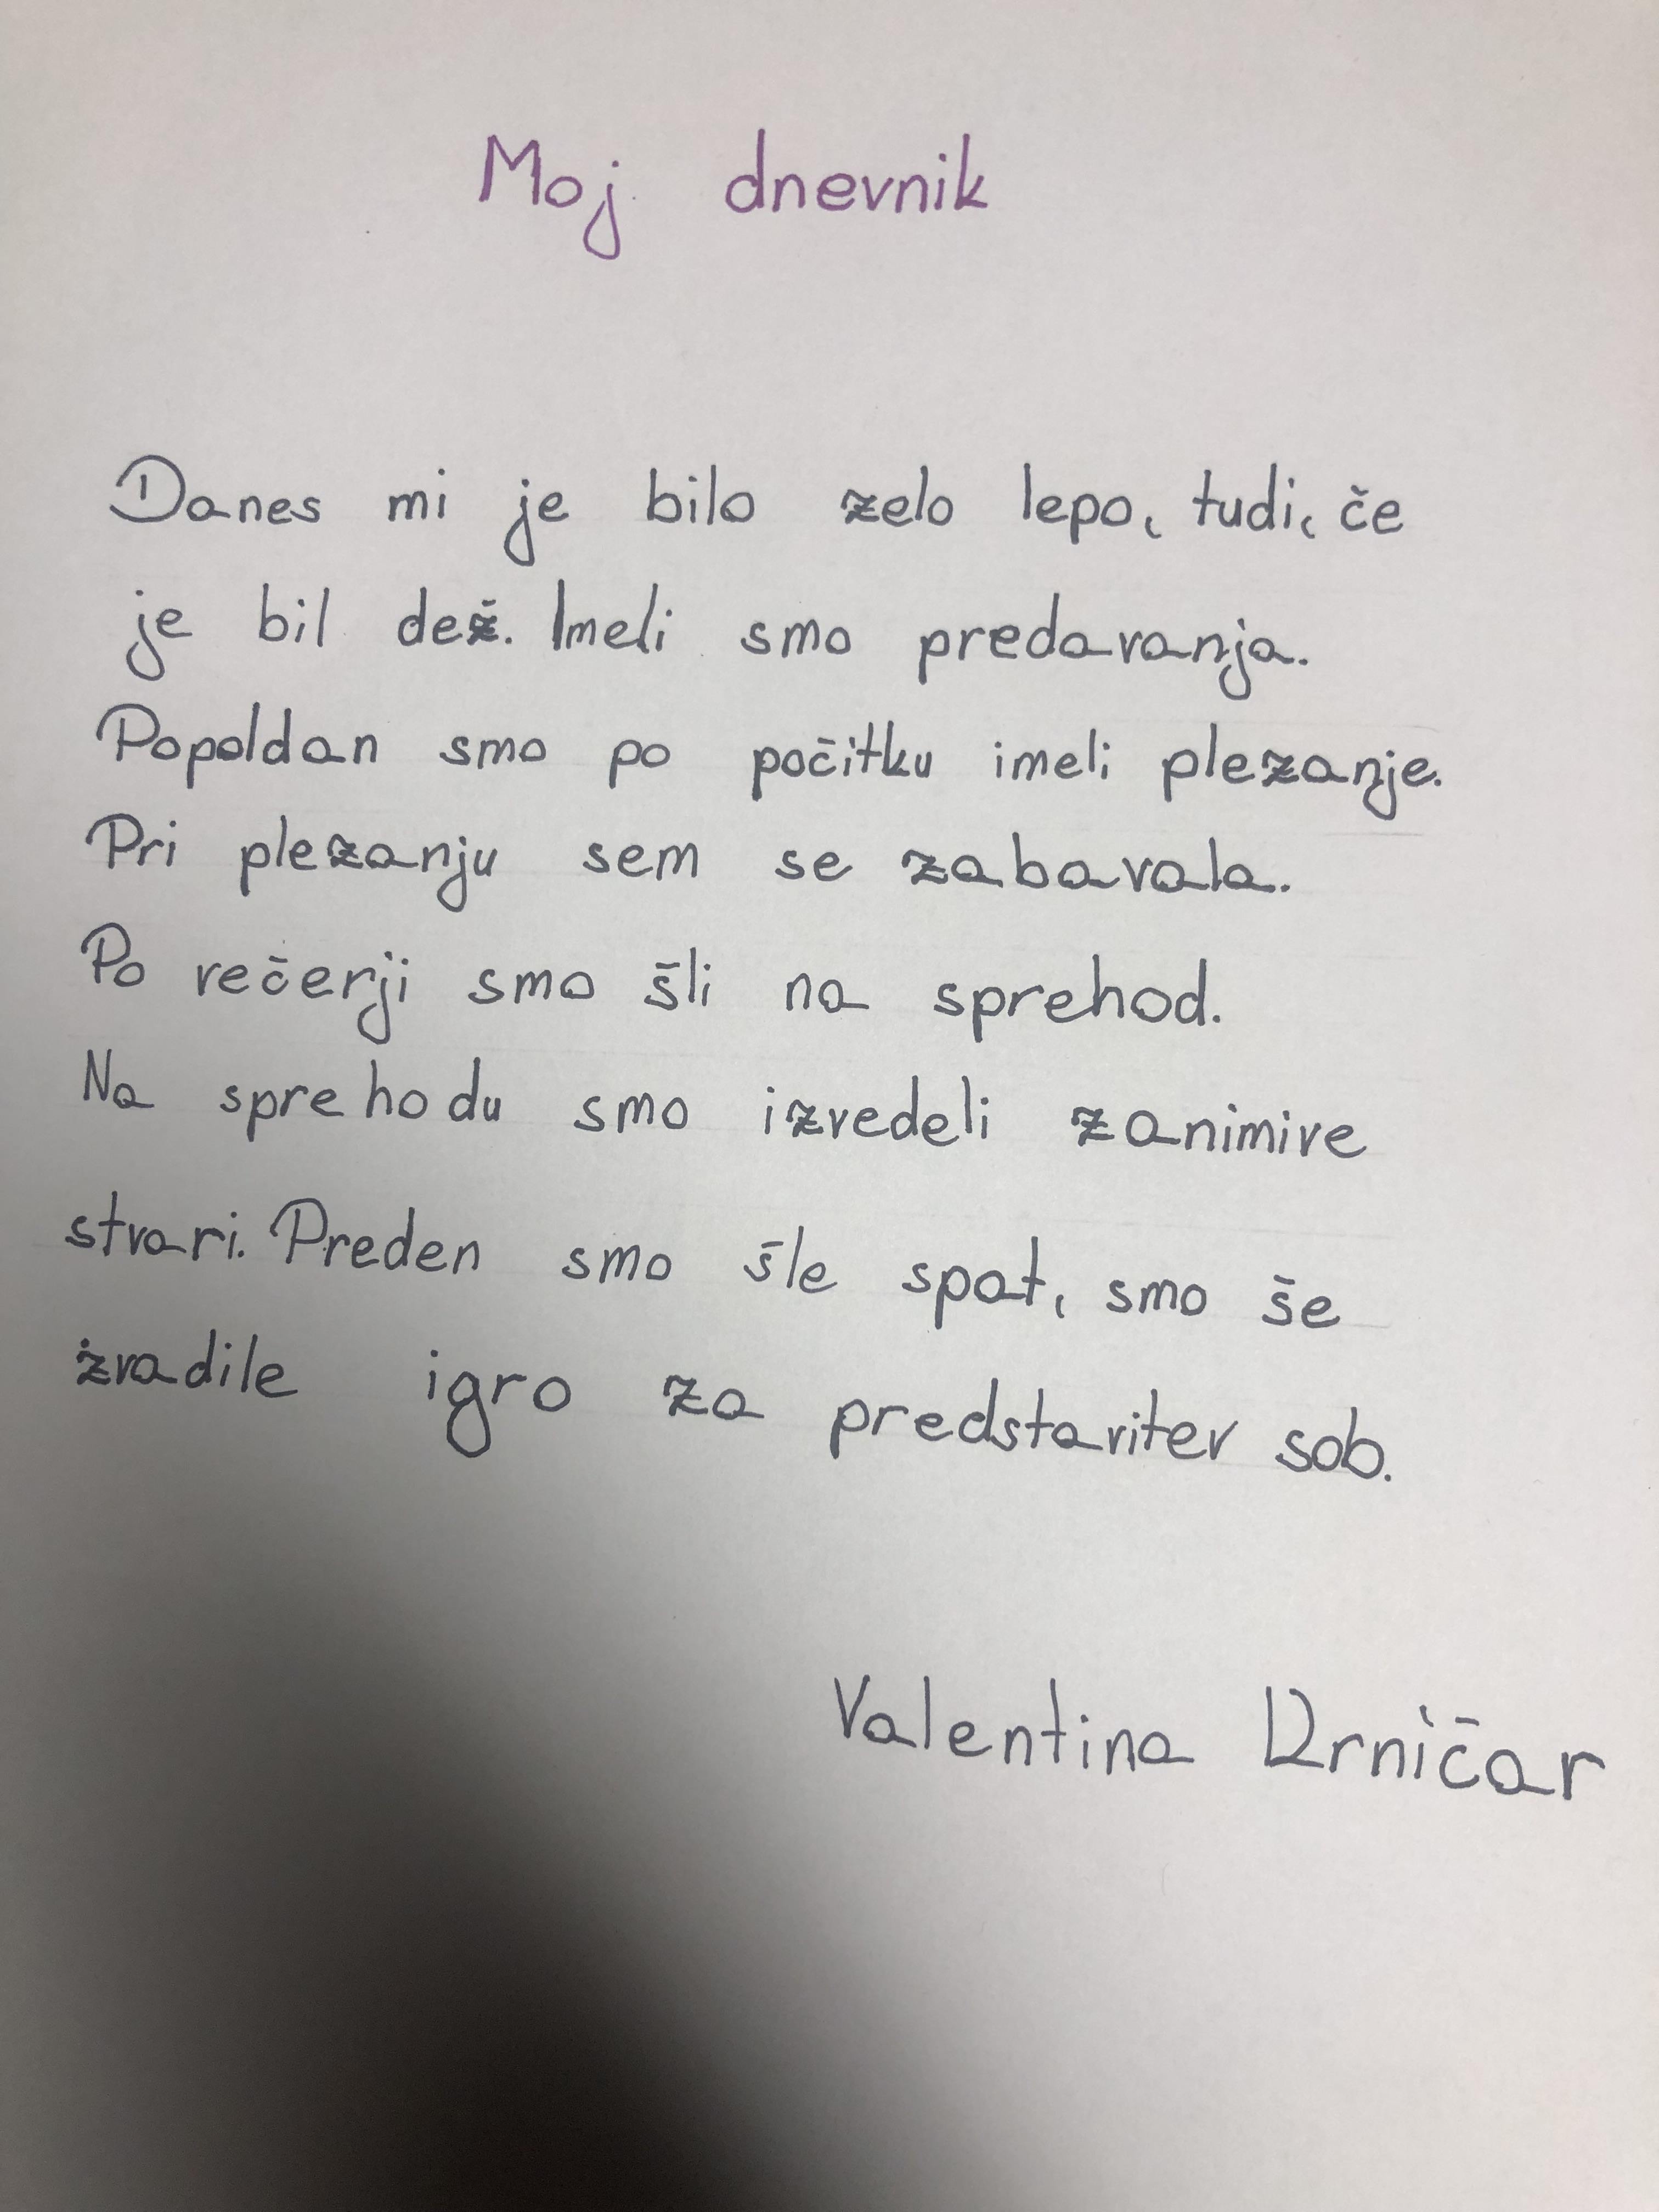 Moj dnevnik
Danes mi je bilo zelo lepo, tudi, če
je bil dež. Imeli smo predavanja.
Popoldan smo po počitku imeli plezanje.
Pri plezanju sem se zabavala.
Po večerji smo šli na sprehod.
Na sprehodu smo izvedeli zanimive
stvari. Preden smo šle spat, smo še
izvadile igro za predstavitev sob.
Valentina Krničar